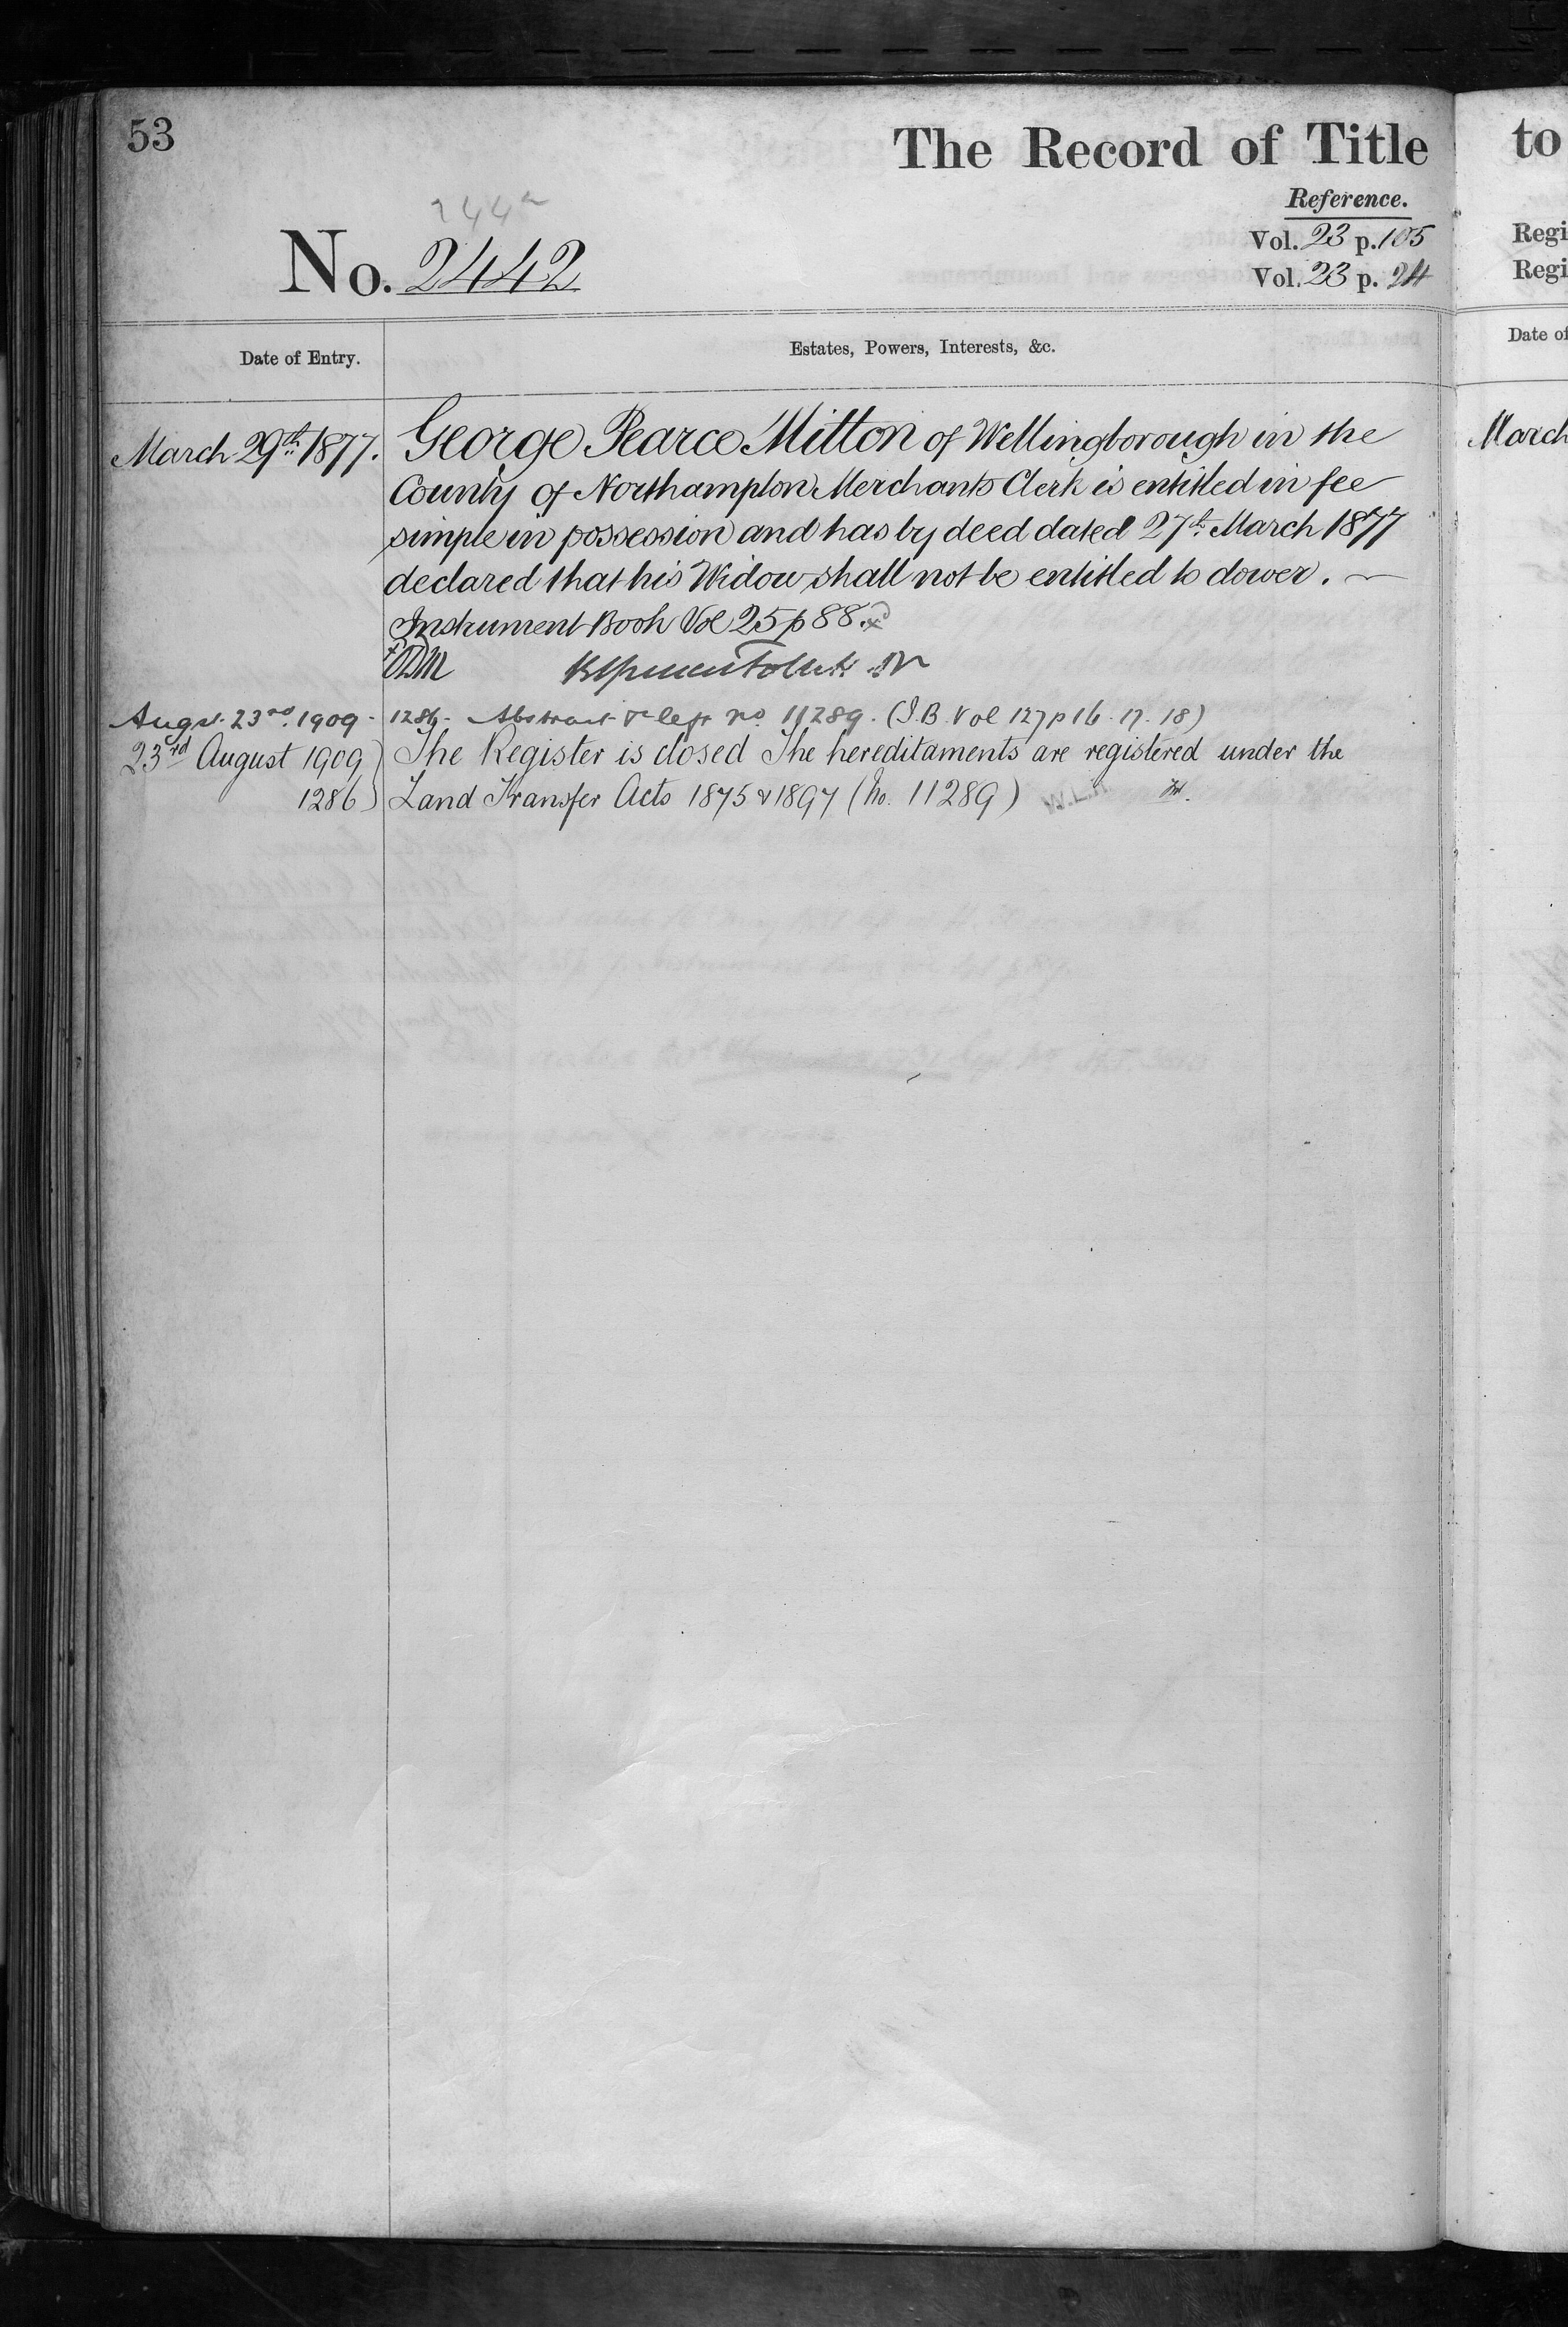 53
The Record of Title
to
Reference.
2442
No. 2442
Vol. 23 p. 105
Vol. 23 p. 24
Regi
Regi
Date of Entry.
Estates, Powers, Interests, &c.
Date of
March 29th 1877.
George Pearce Mitton of Wellingborough in the
County of Northampton Merchants Clerk is entitled in fee
simple in possession and has by deed dated 27th March 1877
declared that his Widow shall not be entitled to dower.
Instrument Book Vol 25 p 88.
March
Augst. 23rd. 1909 - 1286 - Abstract no. 11289. (I.B. Vol 127 p 16. 17. 18)
23rd August 1909 The Register is closed The hereditaments are registered under the
1286 Land Transfer Acts 1875 & 1897 (No. 11289) W.L.H.